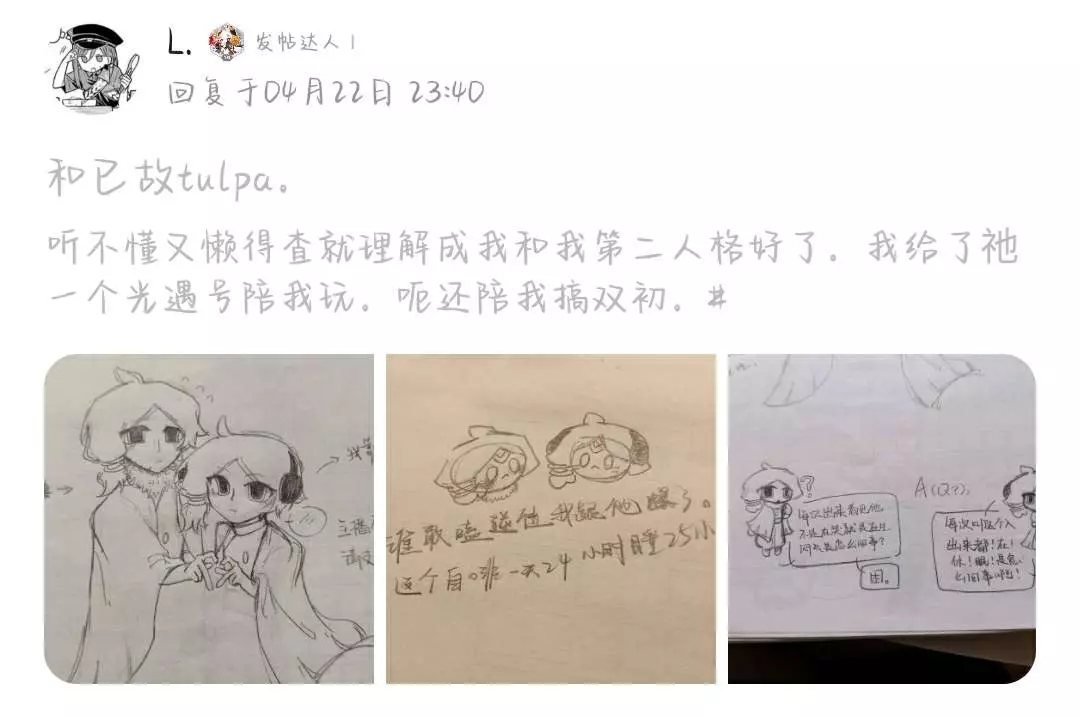 L. 发帖达人 1
回复于04月22日 23:40
和已故tulpa。
听不懂又懒得查就理解成我和我第二人格好了。我给了祂
一个光遇号陪我玩。呃还陪我搞双初。#
谁敢磕这位我跟他爆了。
这个自 一天24小时睡25小
每次出来看见他
不是在哭就是在
怎么回事?
困。
A(Q?),
每次叫这个人
出来都!在!
休!眠!是怎
么回事啊!